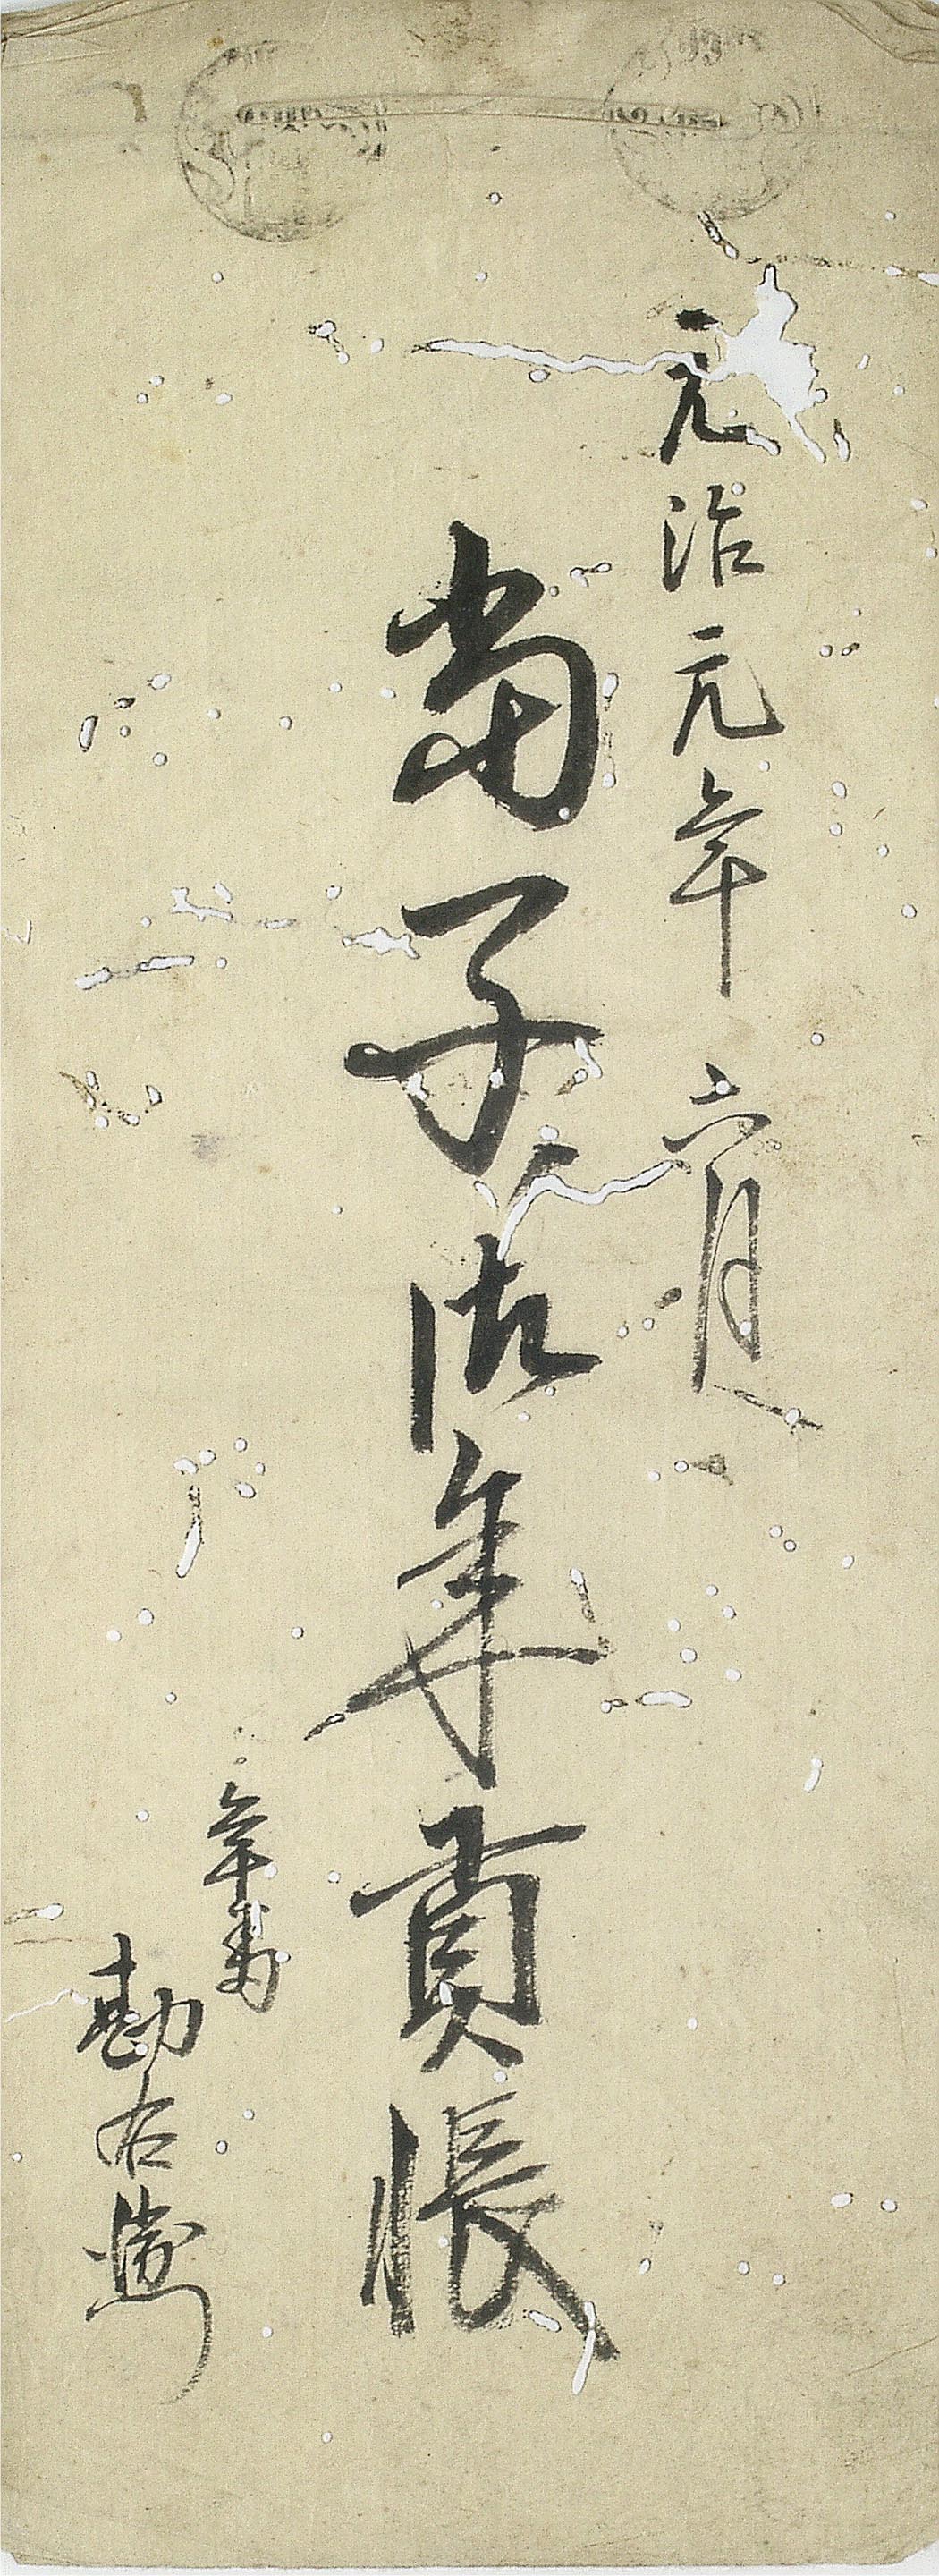 元治元年六月
当子御年貢帳
年寄
勘右衛門